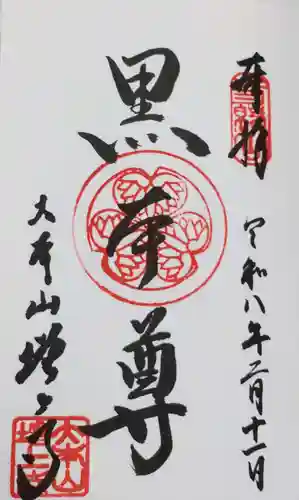 奉拝
令和八年二月十一日
黒本尊
大本山増上寺